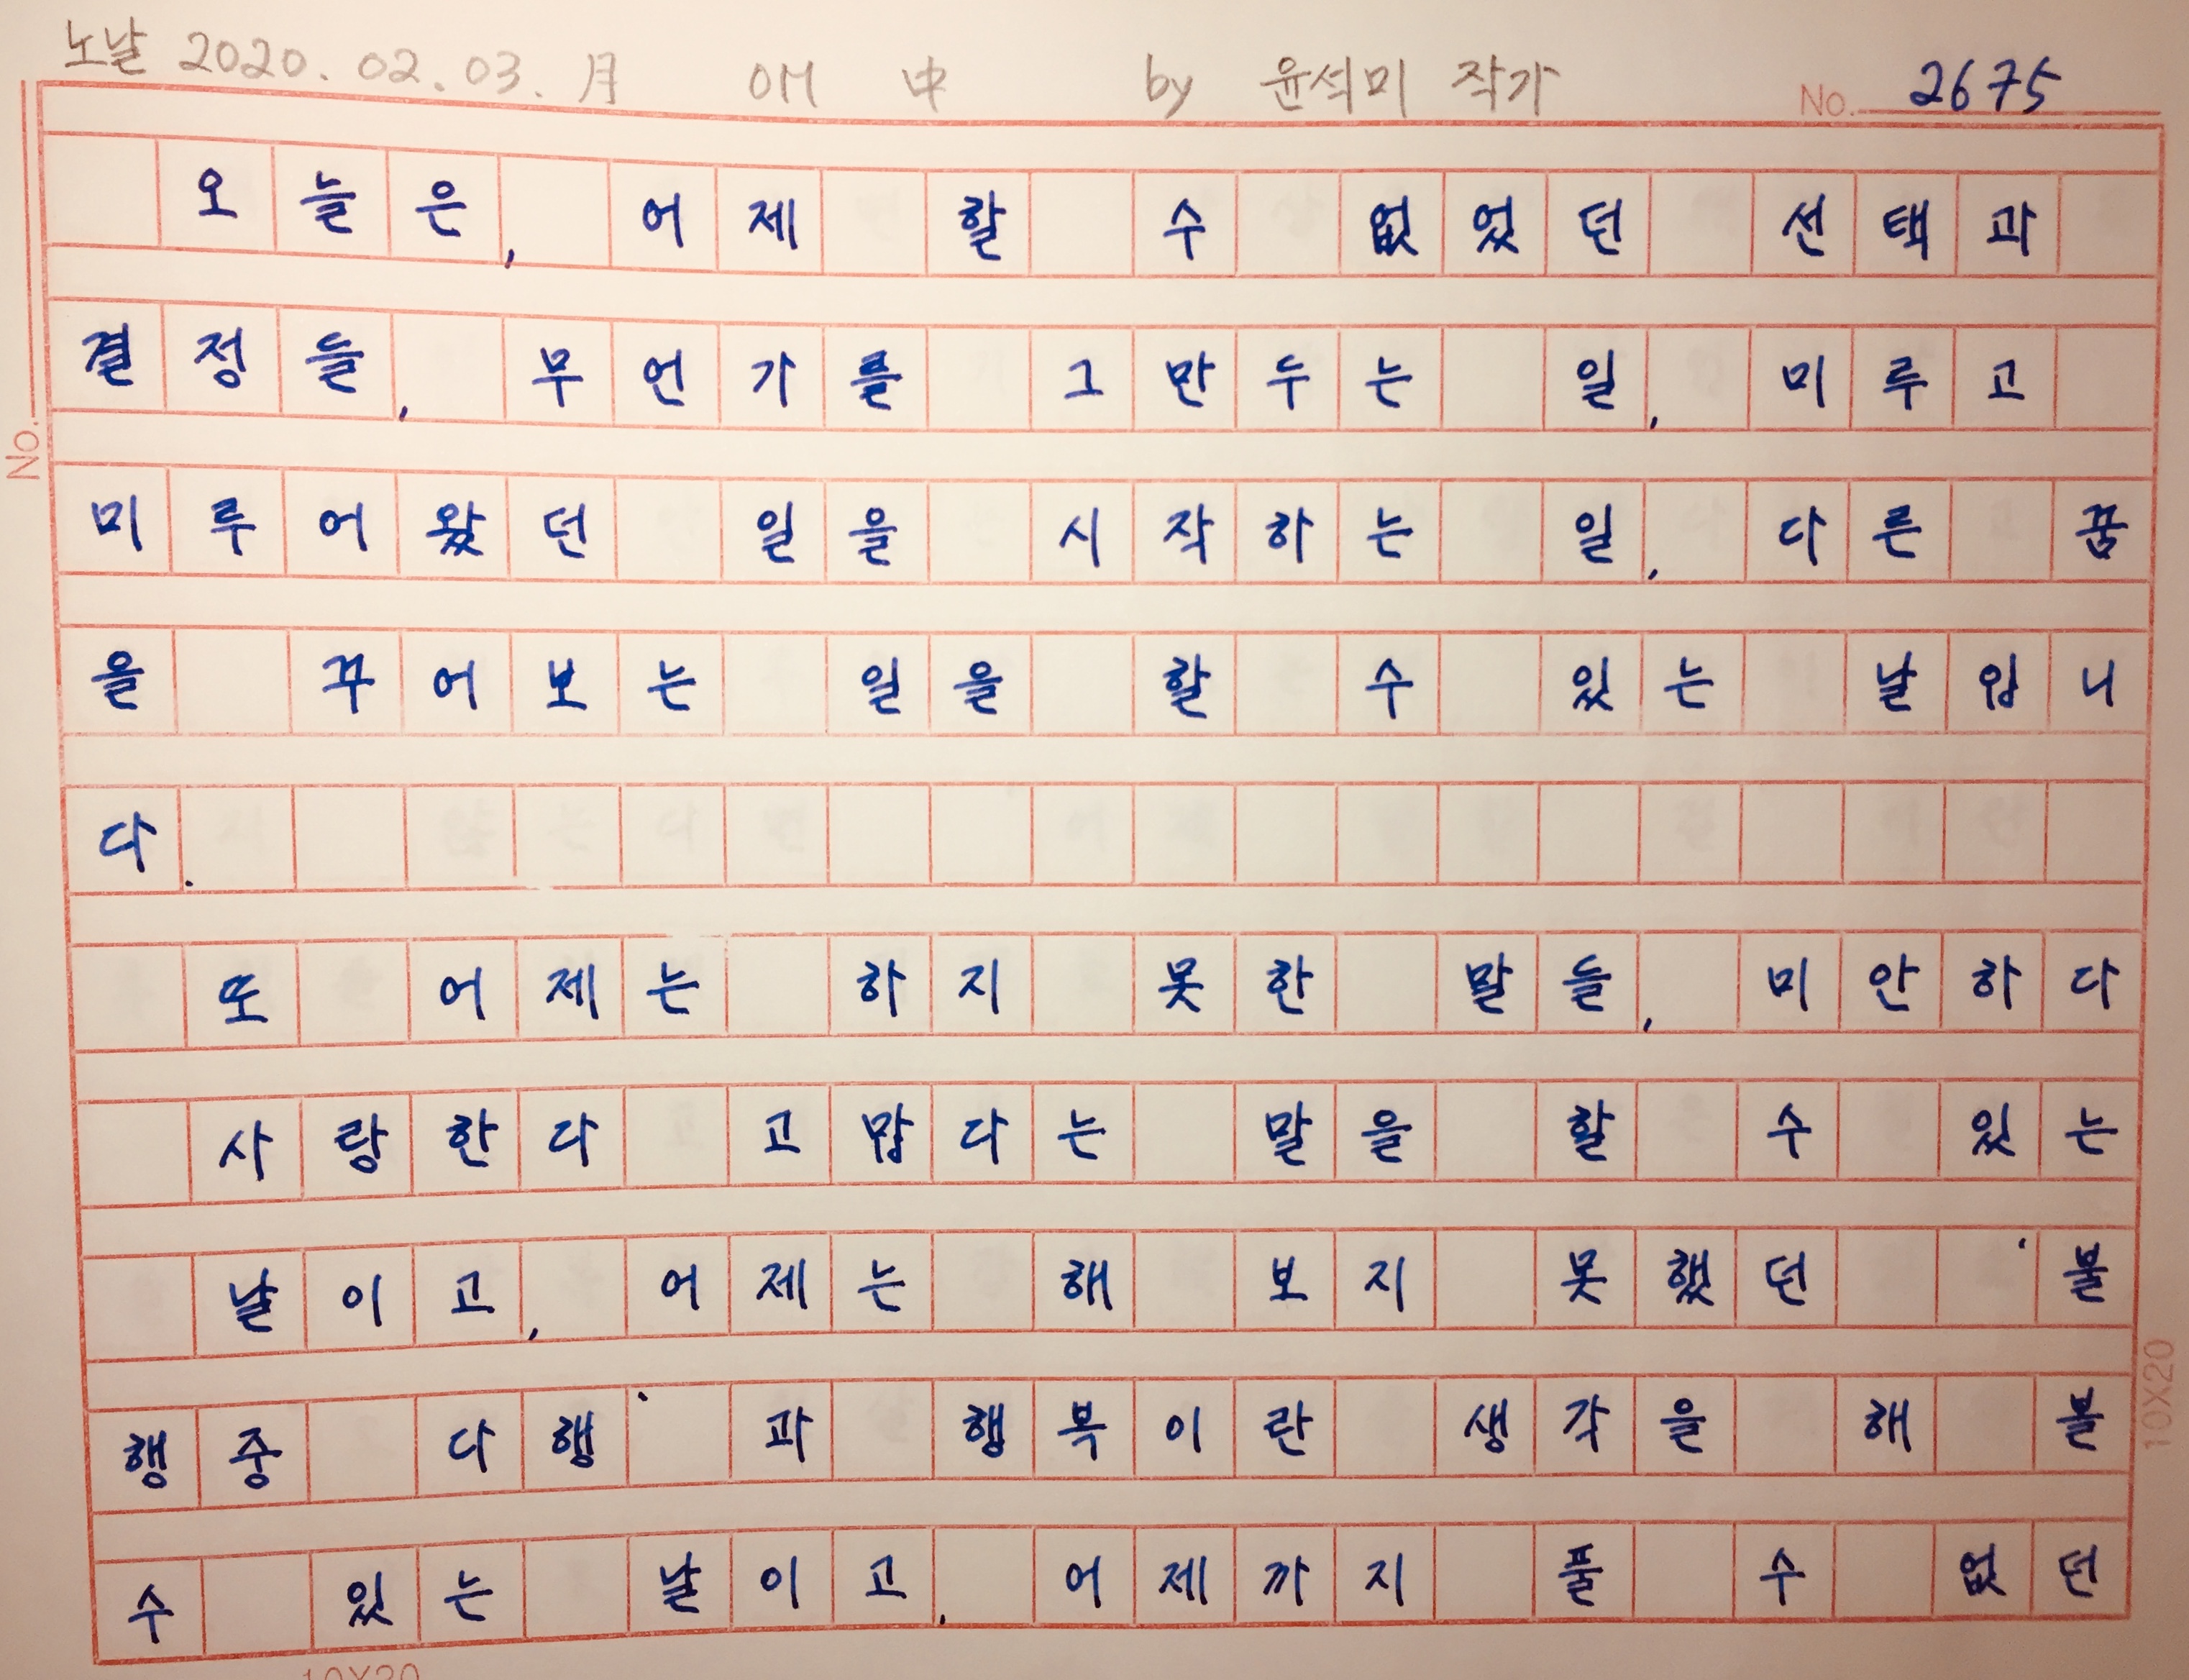 노날 2020.02.03.月 OM 中 by 윤석미 작가 No. 2675
오늘은, 어제 할 수 없었던 선택과
결정들, 무언가를 그만두는 일, 미루고
No.
미루어왔던 일을 시작하는 일, 다른 꿈
을 꾸어보는 일을 할 수 있는 날입니
다.
또 어제는 하지 못한 말들, 미안하다
사랑한다 고맙다는 말을 할 수 있는
날이고, 어제는 해 보지 못했던 '불
행중 다행'과 행복이란 생각을 해 볼
10X20
수 있는 날이고, 어제까지 풀 수 없던
10X20